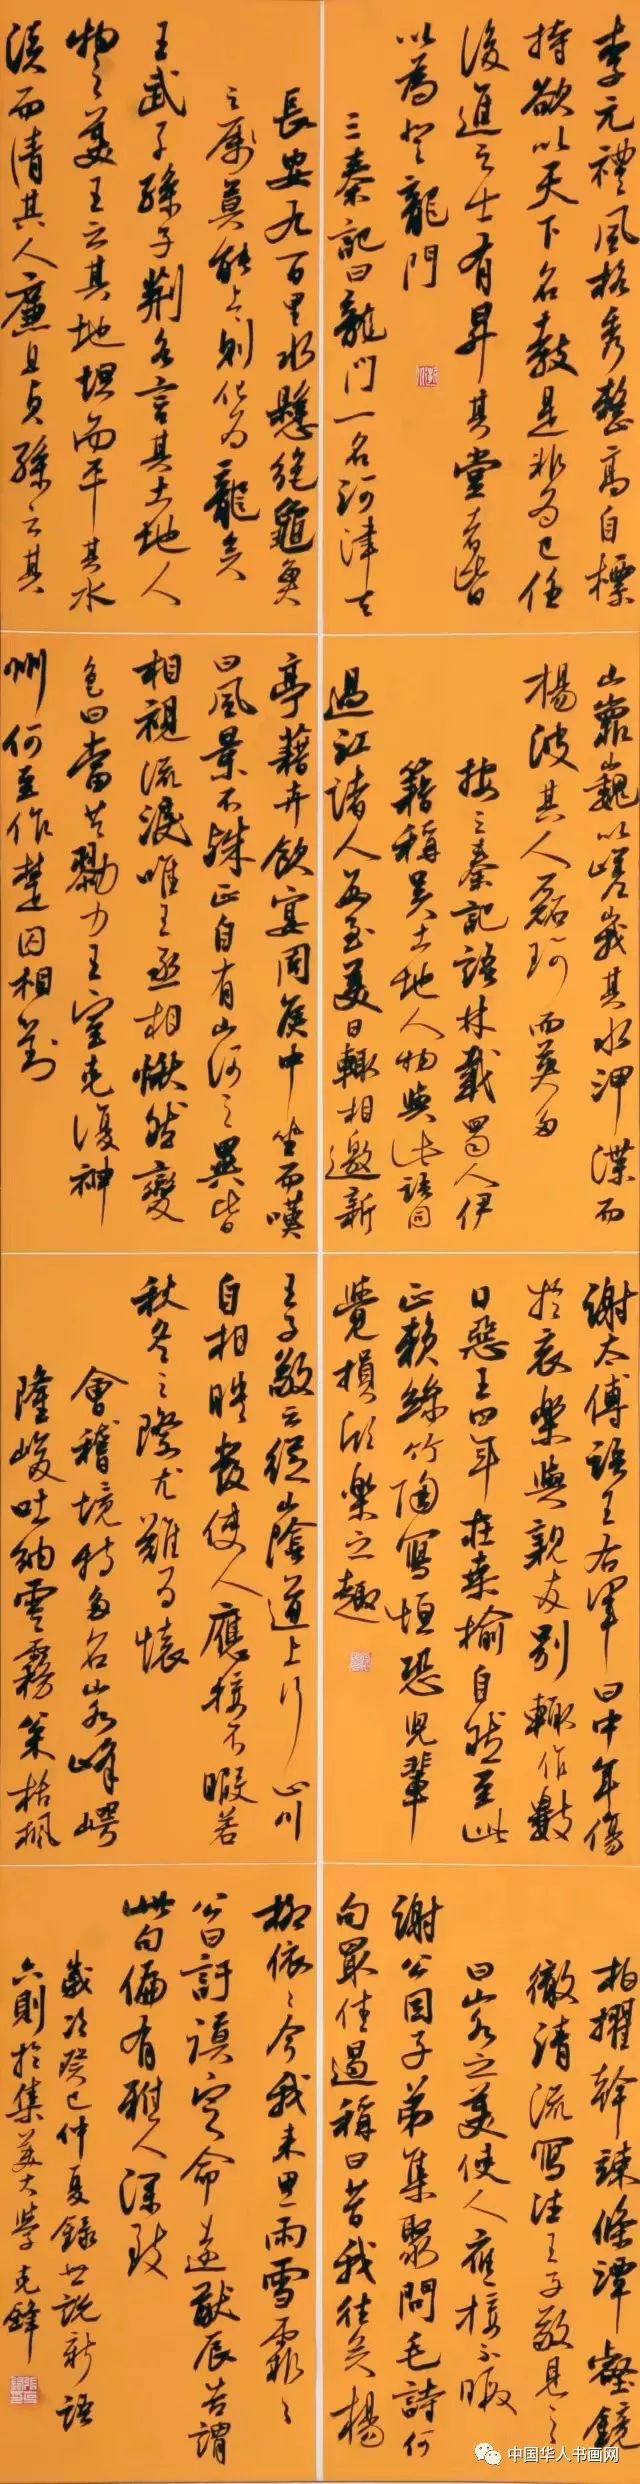 李元禮風格秀整高自標
持欲以天下名教是非為己任
後進之士有昇其堂者皆
以為登龍門
三秦記曰龍門一名河津去
長安九百里水懸絕龜魚
之屬莫能上則化為龍矣
王武子孫子荊各言其土地人
物之美王云其地坦而平其水
淡而清其人廉且貞孫云其
山嶵巍以嵯峨其水㳌渫而
揚波其人磊砢而英多
按三秦記語林載蜀人伊
籍稱吳土地人物與此語同
過江諸人每至美日輒相邀新
亭藉卉飲宴周侯中坐而嘆
曰風景不殊正自有山河之異皆
相視流淚唯王丞相愀然變
色曰當共勠力王室克復神
州何至作楚囚相對
謝太傅語王右軍曰中年傷
於哀樂與親友別輒作數
日惡王曰年在桑榆自然至此
正賴絲竹陶寫恒恐兒輩
覺損欣樂之趣
王子敬云從山陰道上行山川
自相映發使人應接不暇若
秋冬之際尤難為懷
會稽境特多名山水峰崿
隆峻吐納雲霧松栝楓
柏擢幹竦條潭壑鏡
徹清流寫注王子敬見之
曰山水之美使人應接不暇
謝公因子弟集聚問毛詩何
句最佳遏稱曰昔我往矣楊
柳依〻今我來思雨雪霏〻
公曰訏謨定命遠猷辰告謂
此句偏有雅人深致
歲次癸巳仲夏錄世說新語
六則於集美大學克鋒
中国华人书画网